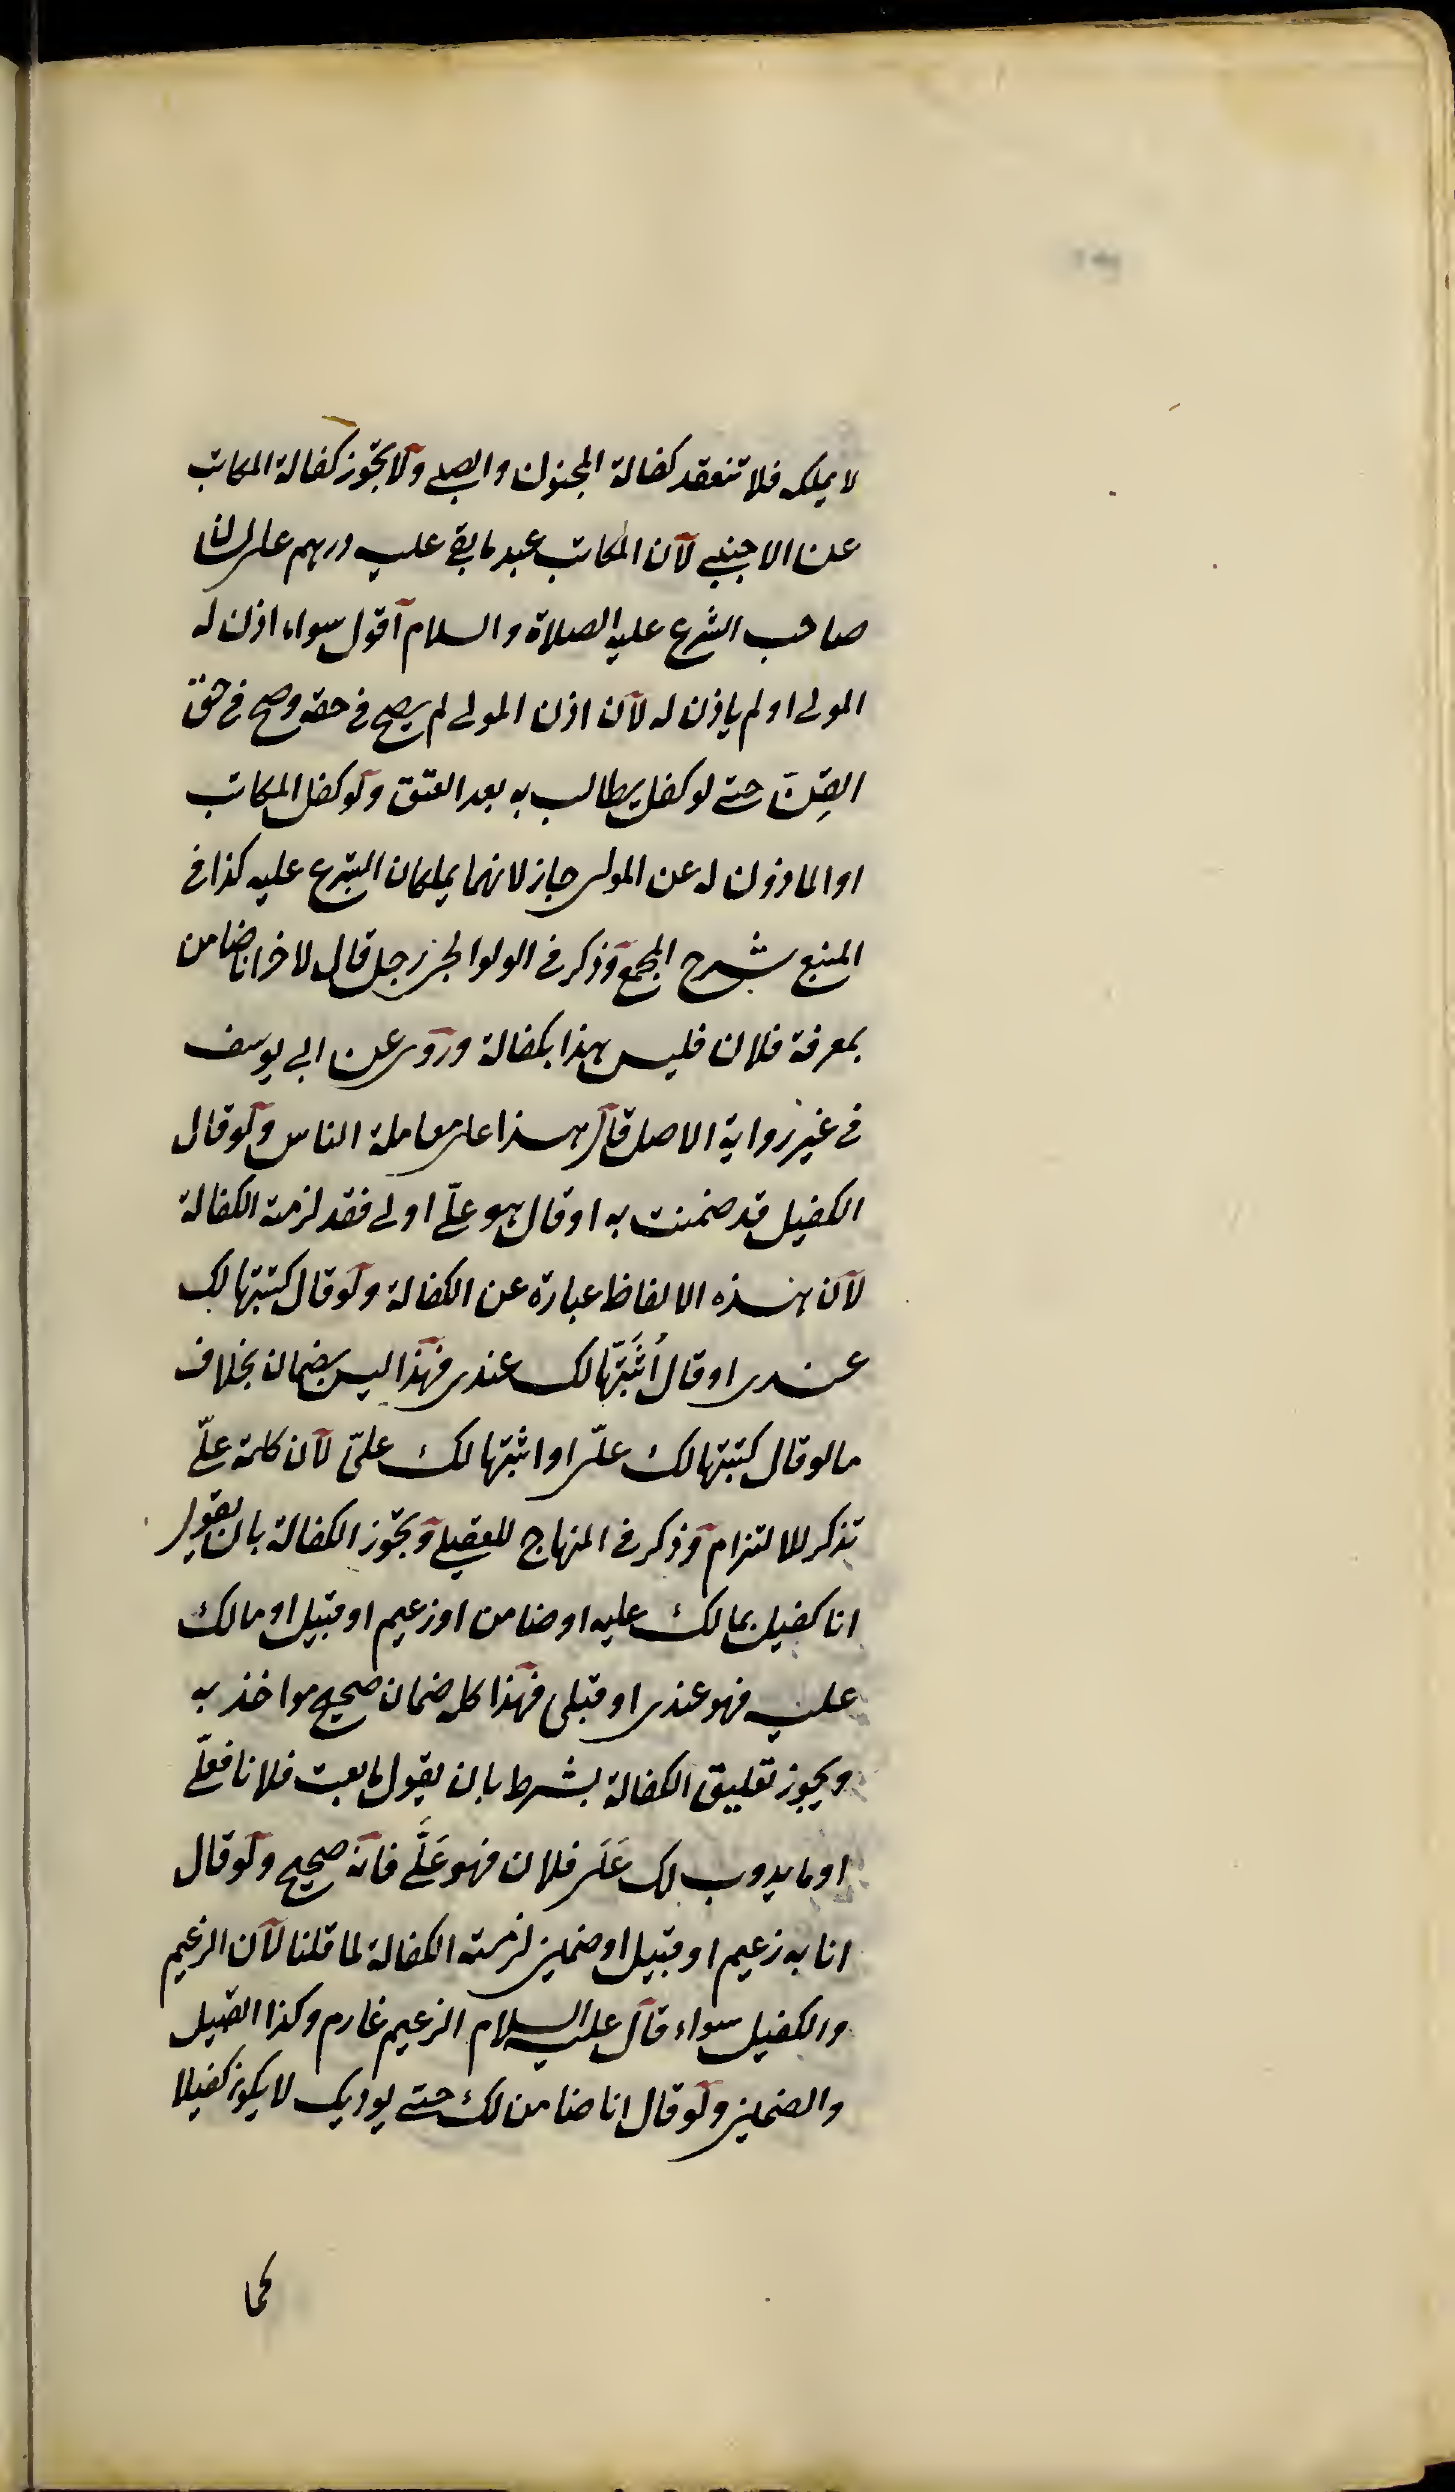 لا يملكه فلا تنعقد كفالة المجنون والصبي ولا تجوز كفالة المكاتب
عن الاجنبي لان المكاتب عبد ما بقي عليه درهم على لسان
صاحب الشرع عليه الصلاة والسلام اقول سواء اذن له
المولى او لم ياذن له لان اذن المولى لم يصح في حقه وصح في حق
القِنّ حتى لو كفل يطالب به بعد العتق ولو كفل المكاتب
او الماذون له عن المولى جاز لانهما يملكان التبرع عليه كذا في
المنبع شرح المجمع وذكر في الولوالجي رجل قال لاخر انا ضامن
بمعرفة فلان فليس هذا بكفالة وروى عن ابي يوسف
في غير رواية الاصل قال هذا على معاملة الناس ولو قال
الكفيل قد ضمنت به او قال هو عليّ او لي فقد لزمته الكفالة
لان هذه الالفاظ عبارة عن الكفالة ولو قال كتبتها لك
عندي او قال أثبتّها لك عندي فهذا ليس بضمان بخلاف
ما لو قال كتبتها لك عليّ او اثبتها لك عليّ لان كلمة عليّ
تذكر للالتزام وذكر في المنهاج للعقيلي وتجوز الكفالة بان يقول
انا كفيل بما لك عليه او ضامن او زعيم او قبيل او مالك
عليه فهو عندي او قبلي فهذا كله ضمان صحيح مواخذ به
ويجوز تعليق الكفالة بشرط بان يقول ما بعت فلانا فعليّ
او ما يدوب لك عَلَى فلان فهو عَلَّي فانه صحيح ولو قال
انا به زعيم او قبيل او ضمين لزمته الكفالة لما قلنا لان الزعيم
والكفيل سواء قال عليه السلام الزعيم غارم وكذا القبيل
والضمين ولو قال انا ضامن لك حتى يوديك لا يكون كفيلا